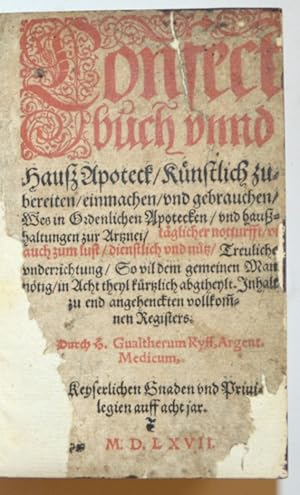 Confect
buch vnnd
Hauß Apoteck/Künstlich zu-
bereiten/einmachen/vnd gebrauchen/
Wes in Ordenlichen Apotecken/vnd hauß-
haltungen zur Artznei/täglicher notturfft/
auch zum lust/dienstlich vnd nütz/Treuliche
vnderrichtung/So vil dem gemeinen Man
nötig/in Acht theyl kürtzlich abgtheylt. Inhalt
zu end angehenckten vollkom̄-
nen Registers.
Durch H. Gualtherum Ryff, Argent.
Medicum,
Keyserlichen Gnaden vnd Priui-
legien auff acht jar.
M. D. LXVII.